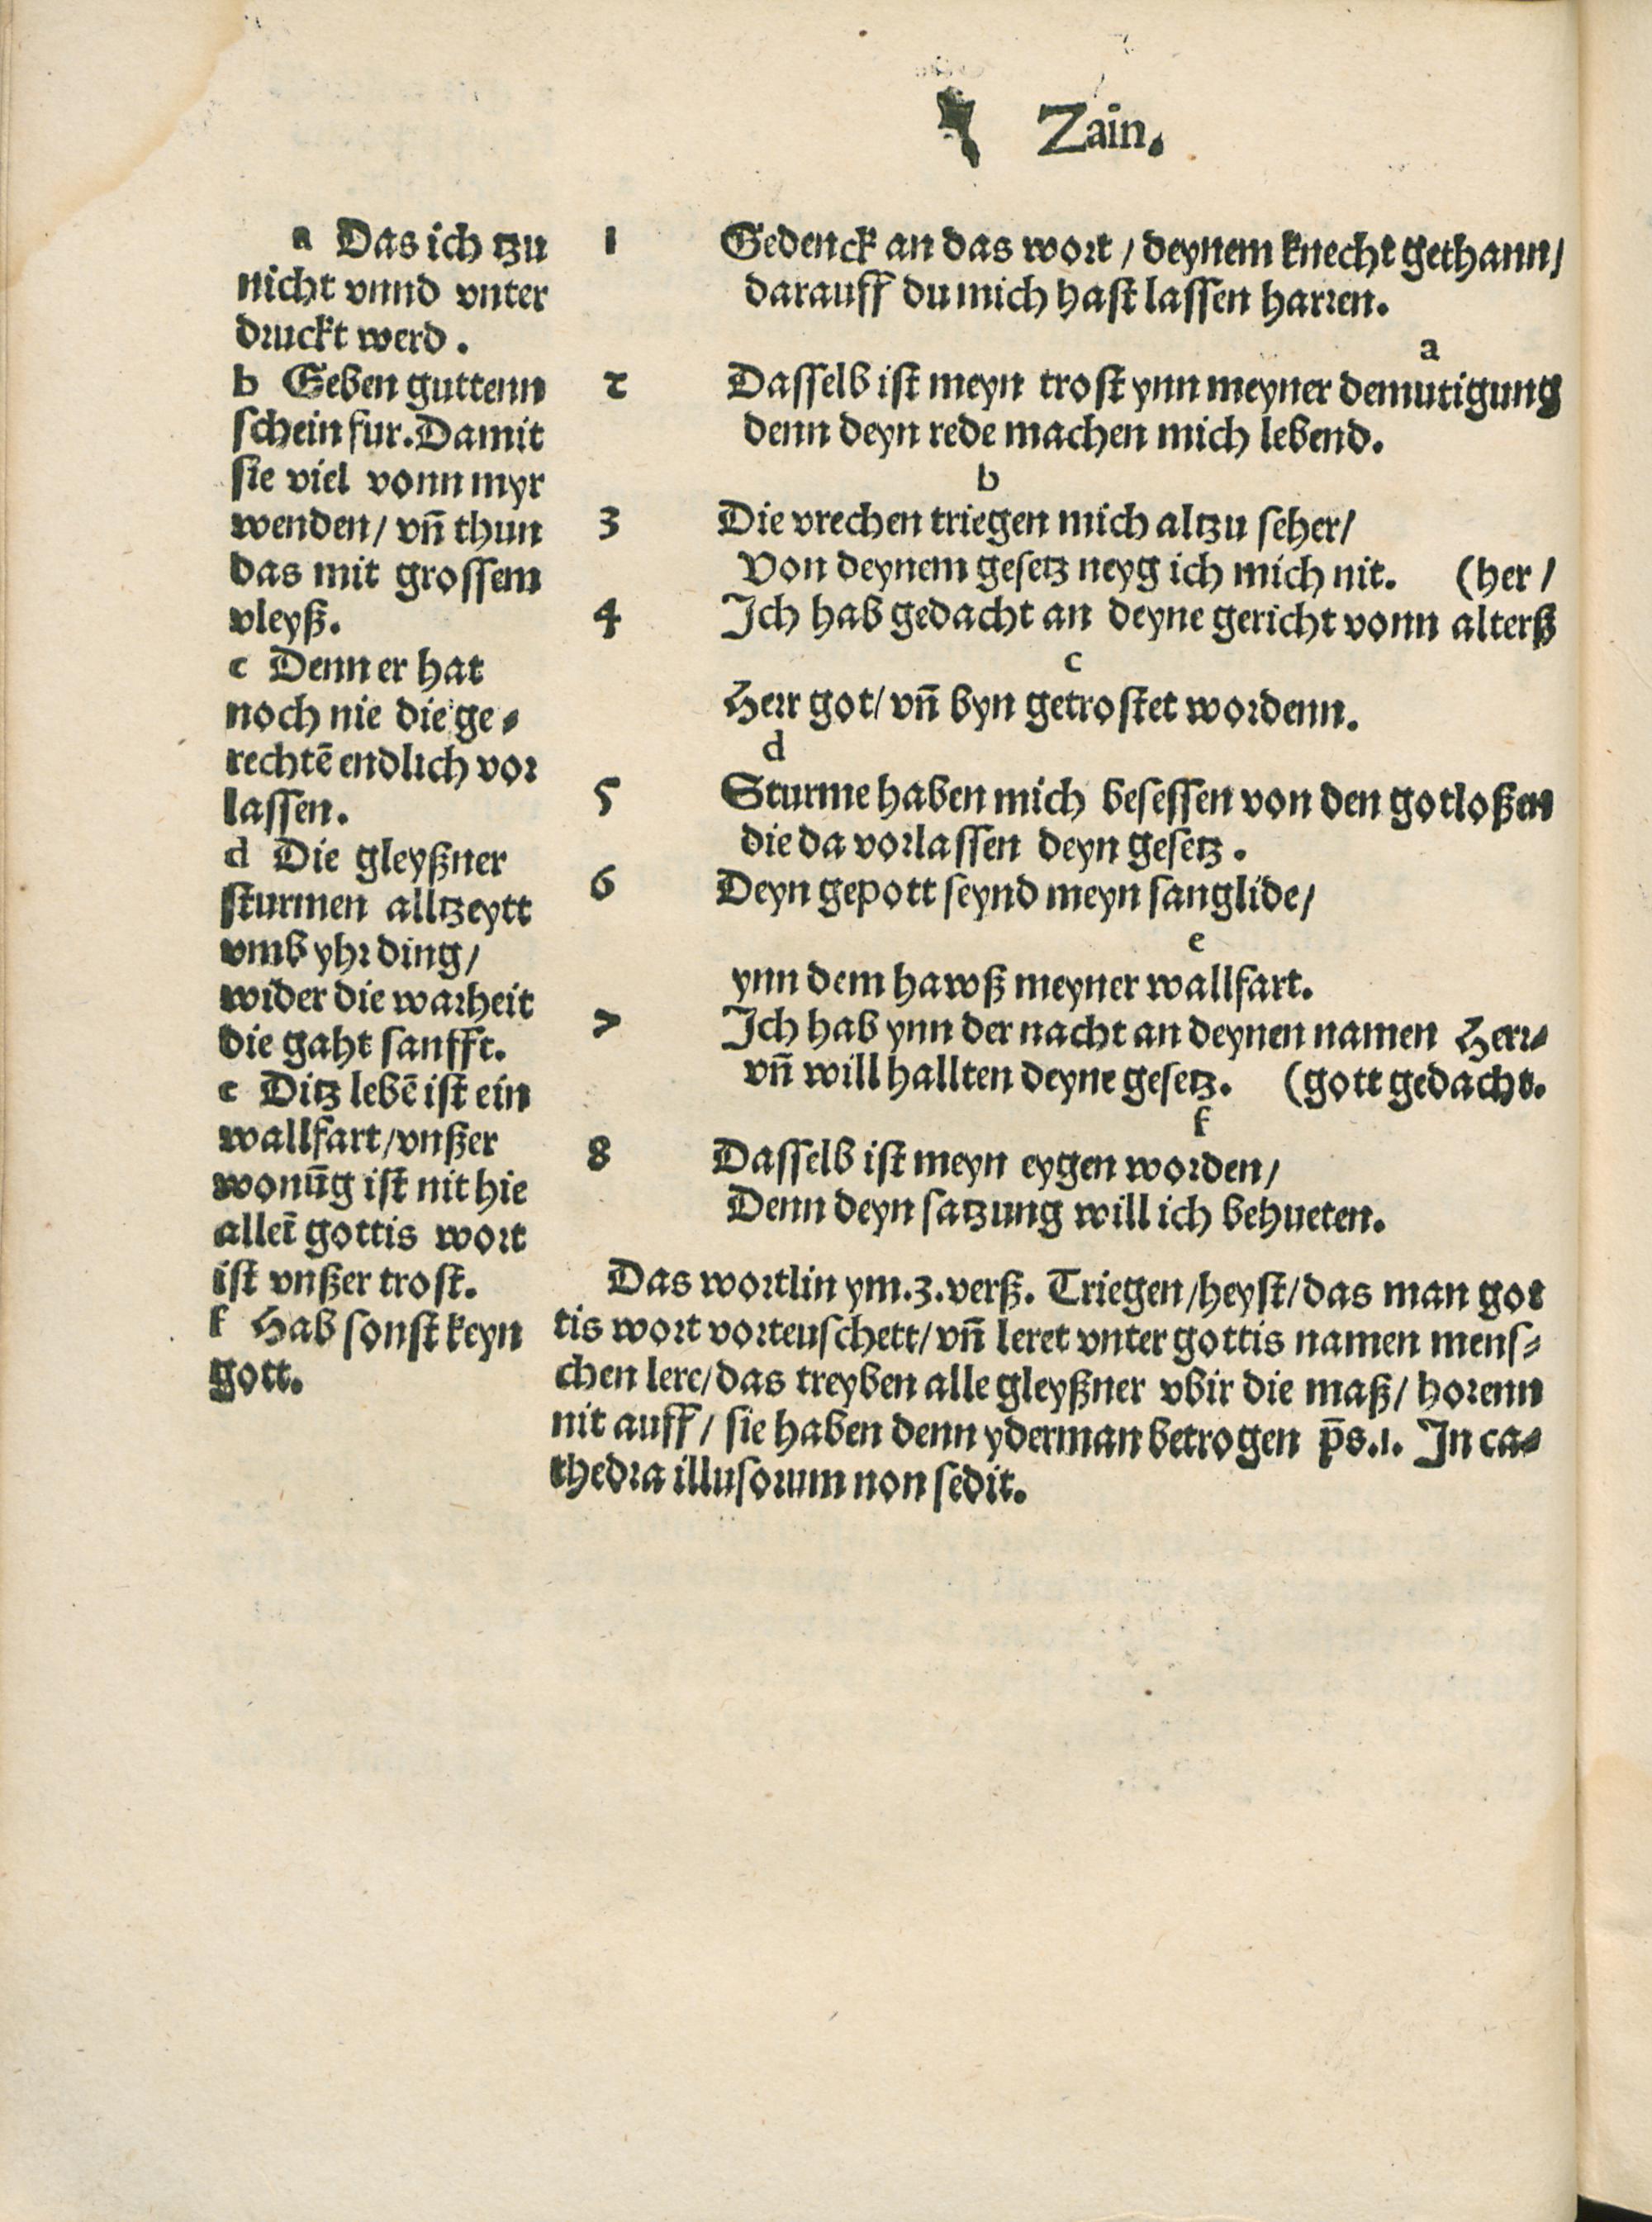 Zain.
a Das ich tzu
nicht vnnd vnter
druckt werd.
b Geben guttenn
schein fur. Damit
sie viel vonn myr
wenden/ vn̄ thun
das mit grossem
vleyß.
c Denn er hat
noch nie die ge⸗
rechtē endlich vor
lassen.
d Die gleyßner
sturmen alltzeytt
vmb yhr ding/
wider die warheit
die gaht sanfft.
e Ditz lebē ist ein
wallfart/ vnßer
wonūg ist nit hie
alleī gottis wort
ist vnßer trost.
f Hab sonst keyn
gott.
1 Gedenck an das wort/ deynem knecht gethann/
darauff du mich hast lassen harren.
a
2 Dasselb ist meyn trost ynn meyner demutigung
denn deyn rede machen mich lebend.
b
3 Die vrechen triegen mich altzu seher/
Von deynem gesetz neyg ich mich nit. (her/
4 Ich hab gedacht an deyne gericht vonn alterß
c
Herr got/ vn̄ byn getrostet wordenn.
d
5 Sturme haben mich besessen von den gotloßen
die da vorlassen deyn gesetz.
6 Deyn gepott seynd meyn sanglide/
e
ynn dem hawß meyner wallfart.
7 Ich hab ynn der nacht an deynen namen Herr⸗
vn̄ will hallten deyne gesetz. (gott gedacht.
f
8 Dasselb ist meyn eygen worden/
Denn deyn satzung will ich behueten.
Das wortlin ym.3.verß. Triegen/ heyst/ das man got
tis wort vorteuschett/ vn̄ leret vnter gottis namen mens⸗
chen lere/ das treyben alle gleyßner vbir die maß/ horenn
nit auff/ sie haben denn yderman betrogen p̄s.1. In ca⸗
thedra illusorum non sedit.